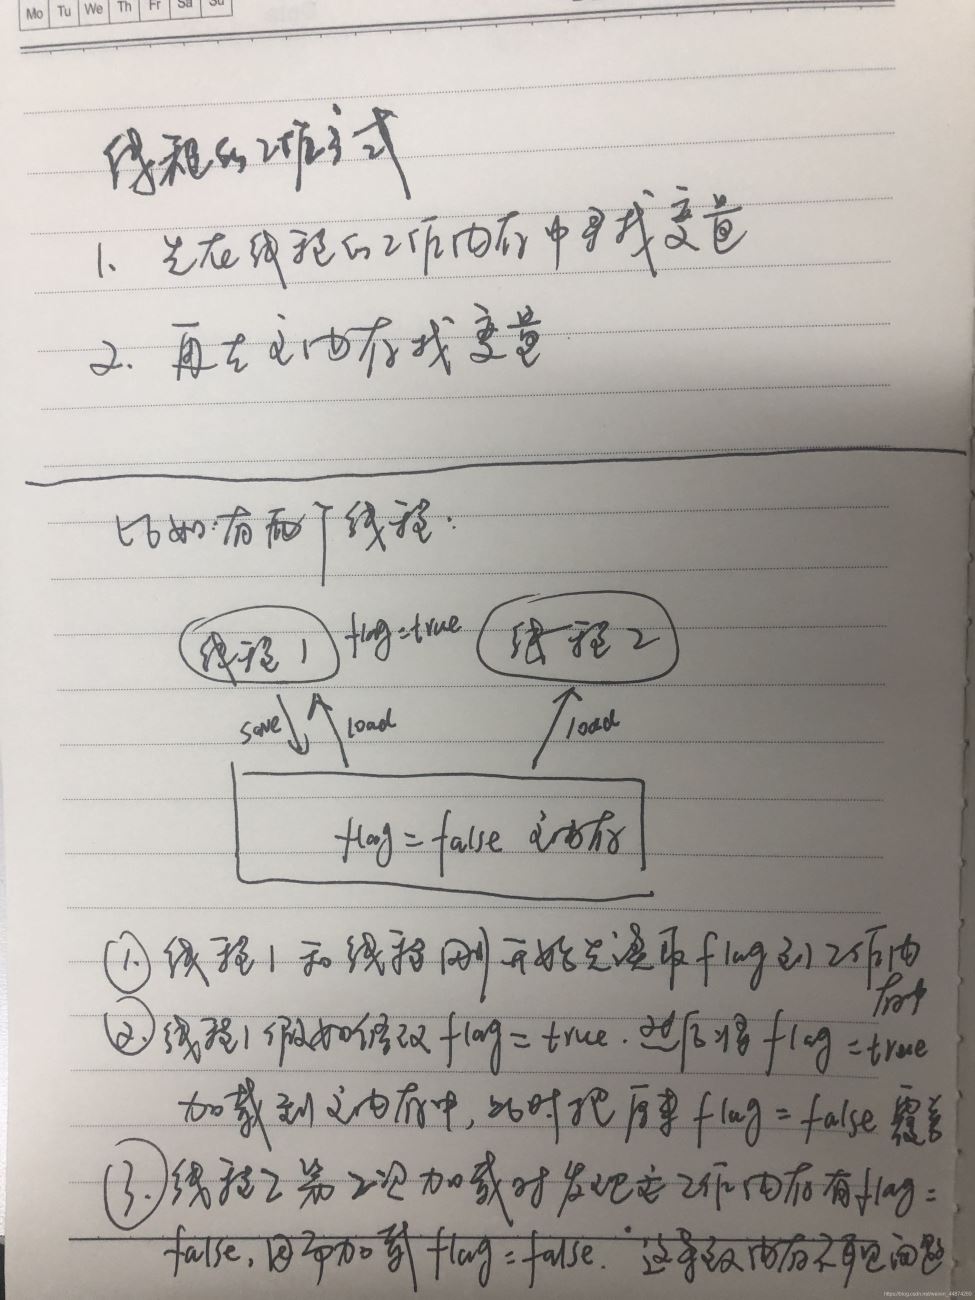 Mo Tu We Th Fr Sa Su
线程的工作方式
1. 先在线程的工作内存中寻找变量
2. 再去主内存找变量
比如:有两个线程:
线程1 flag=true 线程2
save load load
flag = false 主内存
①. 线程1和线程2刚开始先读取flag到工作内
存中
②. 线程1假如修改flag = true. 之后将flag = true
加载到主内存中, 此时把原来flag = false 覆盖
③. 线程2第2次加载时发现它工作内存有flag =
false, 因而加载flag = false. 这导致内存不可见问题
https://blog.csdn.net/weixin_44874269